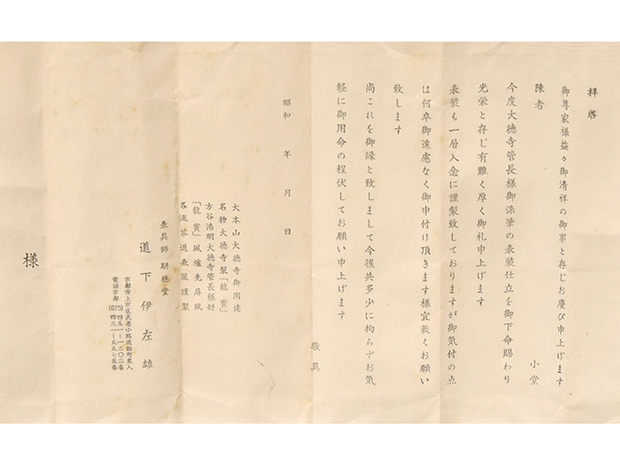 拝啓
御尊家様益々御清祥の御事と存じお慶び申上げます
陳者　小堂
今度大徳寺管長様御染筆の表装仕立を御下命賜わり
光栄と存じ有難く厚く御礼申上げます
表装も一層入念に謹製致しておりますが御気付の点
は何卒御遠慮なく御申付け頂きます様宜敷くお願い
致します
尚これを御縁と致しまして今後共多少に拘らずお気
軽に御用命の程伏してお願い申上げます
敬具
昭和　年　月　日
大本山大徳寺御用達
名物大徳寺製「龍寳」
方谷浩明大徳寺管長様好
「龍寳」風爐先屏風
各流茶道表装謹製
表具師
道下伊左雄
京都市上京区武者小路通新町東入
電話京都(075)四五一ー一三〇二番
四三一ー五五七五番
様